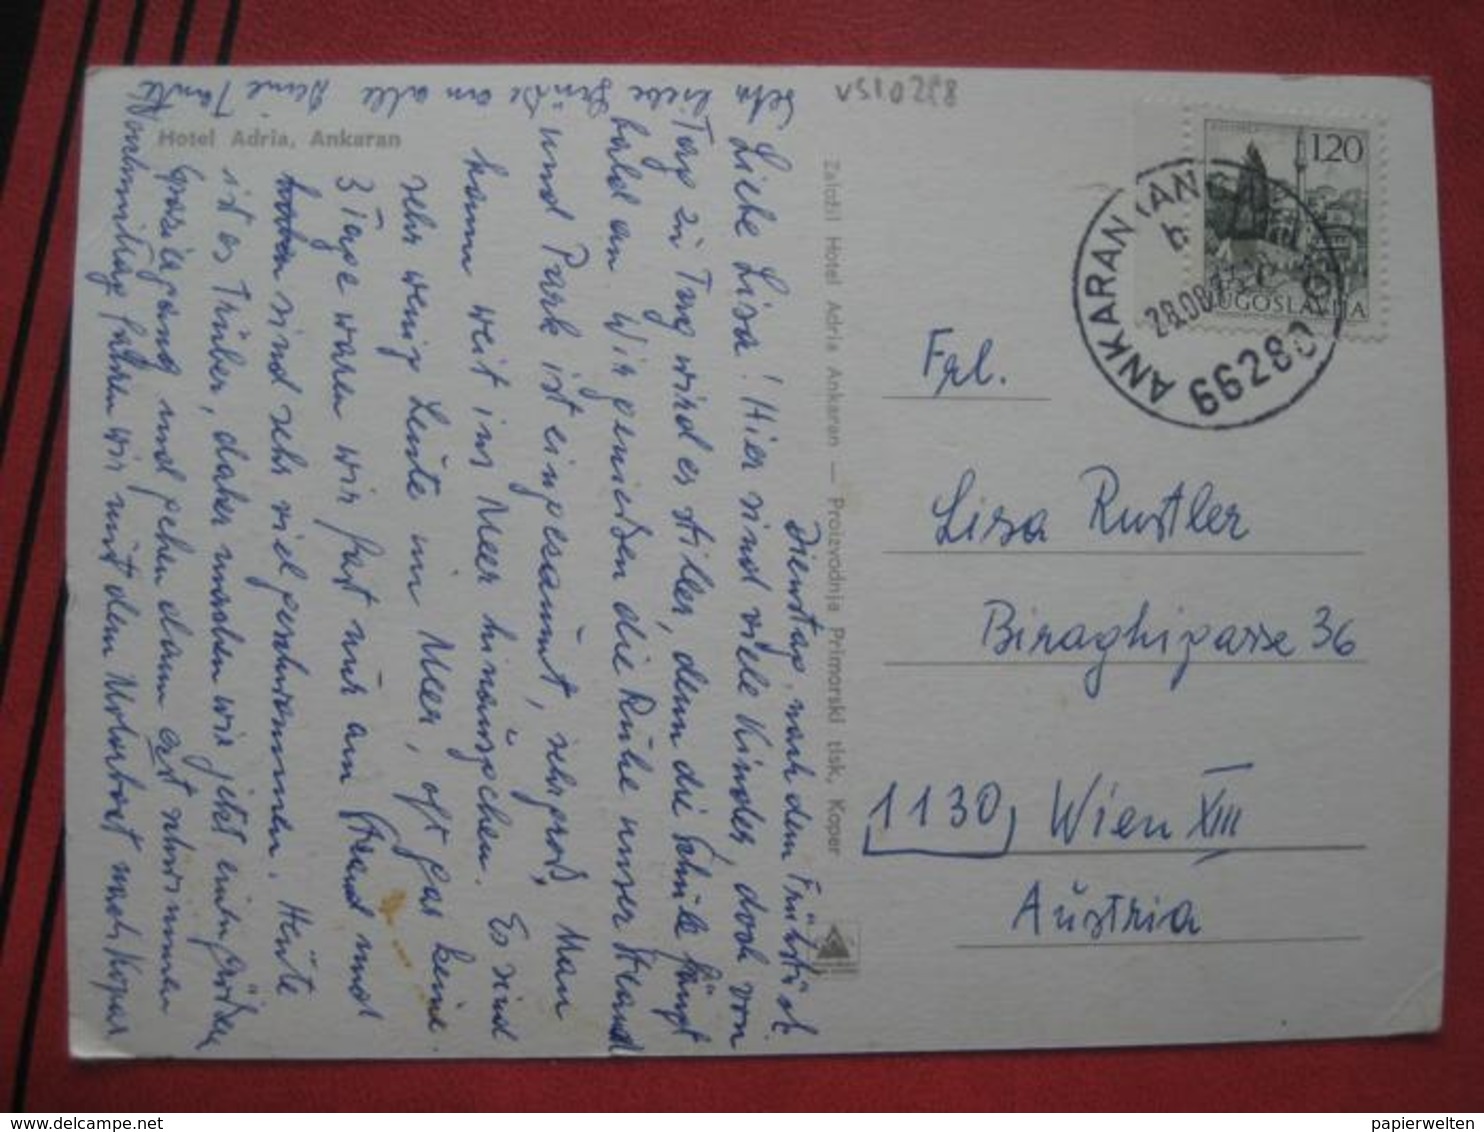 Hotel Adria, Ankaran
Založil Hotel Adria Ankaran — Proizvodnja Primorski tisk, Koper
Dienstag, nach dem Frühstück.
Liebe Lisa! Hier sind viele Kinder, doch von
Tag zu Tag wird es stiller, denn die Schule fängt
bald an. Wir genießen die Ruhe unser Strand
und Park ist eingesäumt, sehr groß, Man
kann weit ins Meer hinausgehen. Es sind
sehr wenig Leute im Meer, oft gar keine.
3 Tage waren wir fast nur am Strand und
sind sehr viel geschwommen. Heute
ist es trüber, daher machen wir jetzt einen großen
Spaziergang und gehen dann erst schwimmen
Nachmittag fahren wir mit dem Motorboot nach Koper
Sehr liebe Grüße an alle Deine Tante
VS10298
1.20
JUGOSLAVIJA
ANKARAN
28.08.7
66280
Frl.
Lisa Rustler
Biraghigasse 36
1130 Wien XIII
Austria
papierwelten